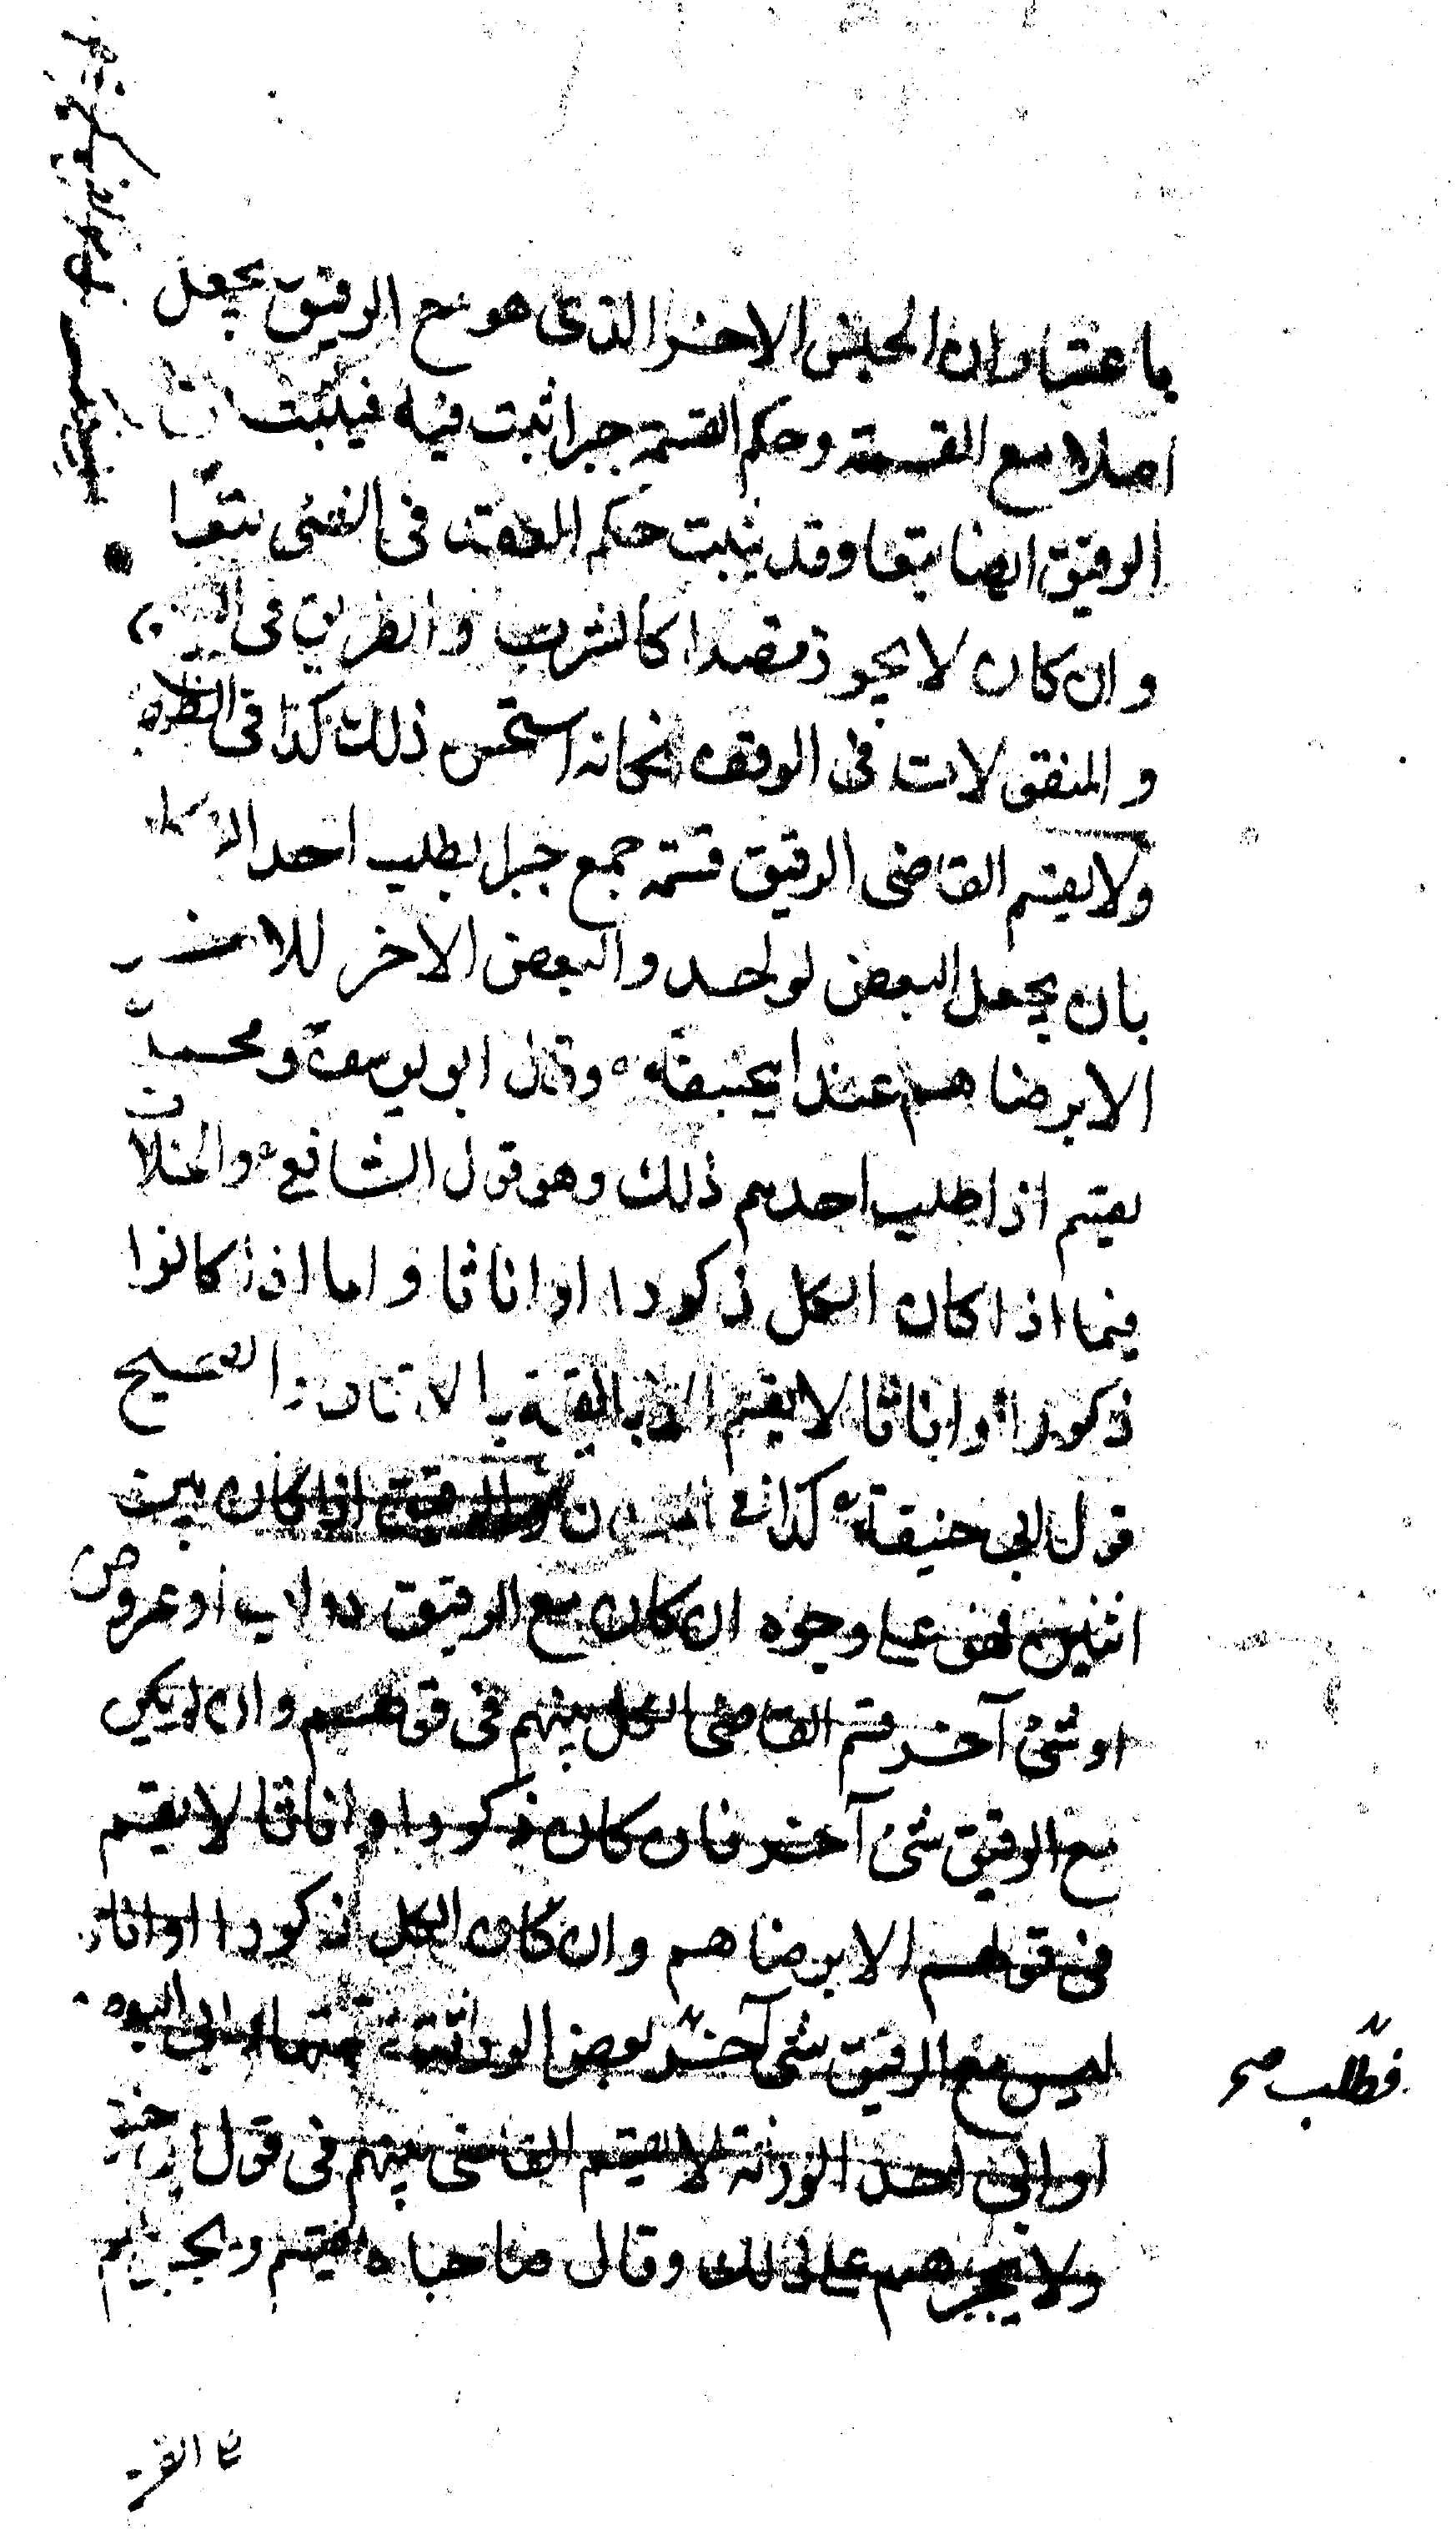 باعتبار ان الجنس الاخر الذى هو مع الرقيق يجعل
اصلا مع القسمة وحكم القسمة جبرا ثبت فيه فيثبت فى
الرقيق ايضا تبعا وقد يثبت حكم العقد فى الشئ تبعا
وان كان لا يجوز قصدا كالشرب والطريق فى
والمنقولات فى الوقف فكانه استحسن ذلك كذا فى
ولا يقسم القاضى الرقيق قسمة جمع جبرا بطلب احد
بان يجعل البعض لواحد والبعض الاخر للاخر
الا برضاهم عند ابيحنيفة وقال ابو يوسف ومحمد
يقسم اذا طلب احدهم ذلك وهو قول الشافعى والخلاف
فيما اذا كان الكل ذكورا او اناثا واما اذا كانوا
ذكورا واناثا لا يقسم الا بالقيمة بالاتفاق والصحيح
قول ابى حنيفة كذا فى الرقيق اذا كان بين
اثنين فهو على وجوه ان كان مع الرقيق دواب او عروض
او شئ آخر قسم القاضى الكل بينهم فى قولهم وان لم يكن
مع الرقيق شئ آخر فان كان ذكورا واناثا لا يقسم
فى قولهم الا برضاهم وان كان الكل ذكورا او اناثا
ليس مع الرقيق شئ آخر بعض الورثة قسمتها وابى البعض
فطلب صح
او ابى احد الورثة لا يقسم القاضى بينهم فى قول
ولا يجبرهم على ذلك وقال صاحباه يقسم ويجبرهم